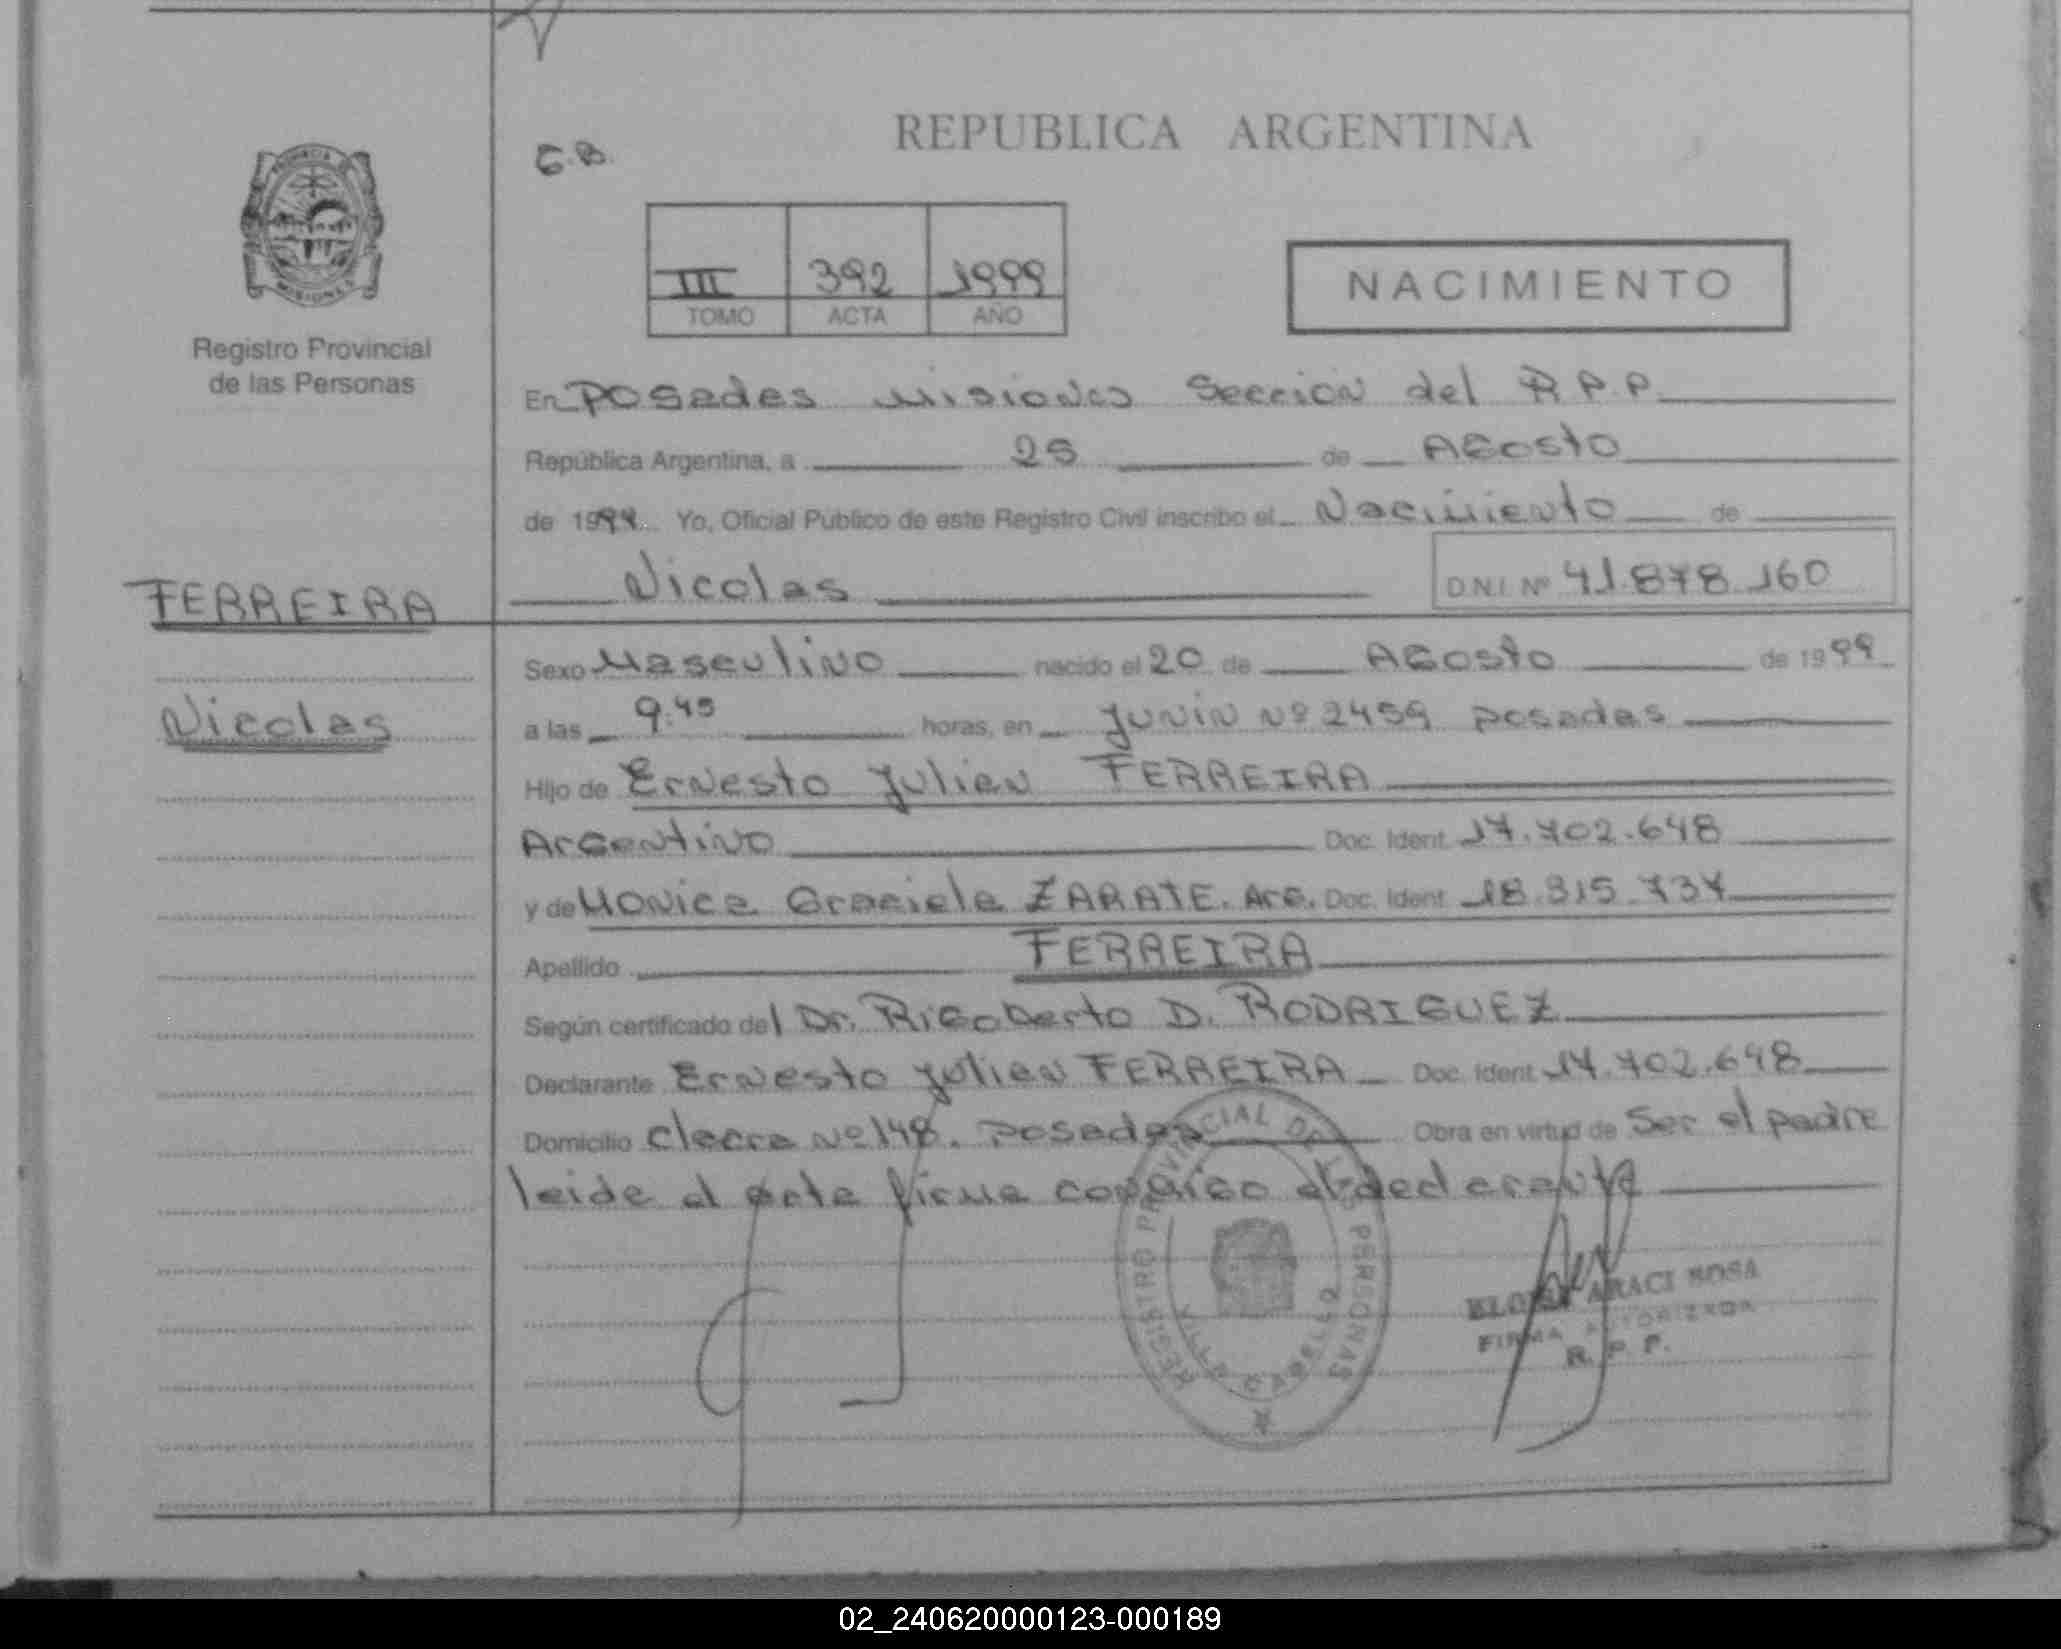 REPUBLICA ARGENTINA
G.B.
III 392 1999
TOMO ACTA AÑO
NACIMIENTO
PROVINCIA DE MISIONES
Registro Provincial
de las Personas
En Posadas Misiones Sección del R.P.P.
República Argentina, a 25 de Agosto
de 1999. Yo, Oficial Público de este Registro Civil inscribo el Nacimiento de
Nicolas D.N.I. Nº 41.878.160
FERREIRA
Nicolas
Sexo Masculino nacido el 20 de Agosto de 1999
a las 9:45 horas, en Junin Nº 2459 posadas
Hijo de Ernesto Julian FERREIRA
Argentino Doc. Ident. 17.702.648
y de Monica Graciela ZARATE. Arg. Doc. Ident. 18.315.737
Apellido FERREIRA
Según certificado del Dr. Rigoberto D. RODRIGUEZ
Declarante Ernesto Julian FERREIRA Doc. Ident. 17.702.648
Domicilio Nº 148. posadas Obra en virtud de Ser el padre
leida el acta firma conmigo el declarante
REGISTRO PROVINCIAL DE LAS PERSONAS
VILLA CABELLO
ARACI ROSA
FIRMA AUTORIZADA
R. P. P.
02_240620000123-000189